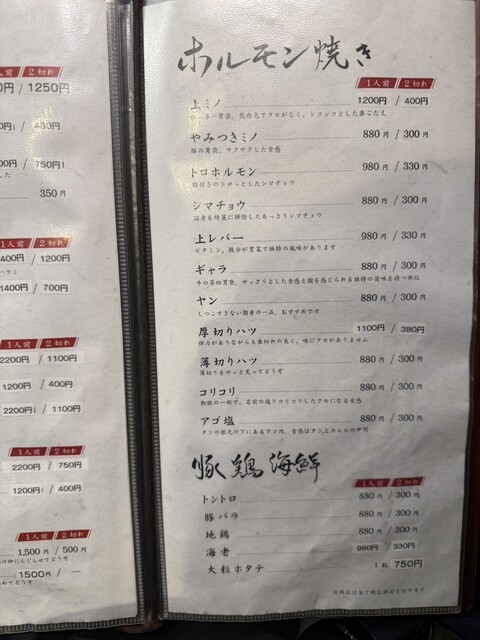 人前 2切れ
0円 / 1250円
円 / 450円
00円 / 750円
350円
1人前 2切れ
400円 / 1200円
ハラミ
1400円 / 700円
人前 2切れ
2200円 / 1100円
1200円 / 400円
2200円 / 1100円
1人前 2切れ
2200円 / 750円
1200円 / 400円
1人前 2切れ
1,500円 / 500円
1500円 / ―
ホルモン焼き
1人前 2切れ
上ミノ 1200円 / 400円
胃袋、乳白色でクセがなく、コリコリとした歯ごたえ
やみつきミノ 880円 / 300円
豚の胃袋、サクサクした食感
トロホルモン 980円 / 330円
脂付きのトロっとしたシマチョウ
シマチョウ 880円 / 300円
脂身を綺麗に掃除したあっさりシマチョウ
上レバー 980円 / 330円
ビタミン、鉄分が豊富で独特の風味があります
ギャラ 880円 / 300円
牛の第四胃袋、ザックリとした食感と脂を感じられる独特の旨味を持つ部位
ヤン 880円 / 300円
しつこすぎない脂身の一品、おすすめです
厚切りハツ 1100円 / 380円
弾力がありながらも歯切れの良く、味にクセがありません
薄切りハツ 880円 / 300円
薄切りをサッと炙ってどうぞ
コリコリ 880円 / 300円
動脈の一部で、名前の通りコリコリしたクセになる食感
アゴ塩 880円 / 300円
タンの根元の下にあるアゴ肉、食感はタンとカルビの中間
豚鶏海鮮
1人前 2切れ
トントロ 880円 / 300円
豚バラ 880円 / 300円
地鶏 880円 / 300円
海老 980円 / 330円
大粒ホタテ 1ヶ 750円
※商品は全て税込表記となります